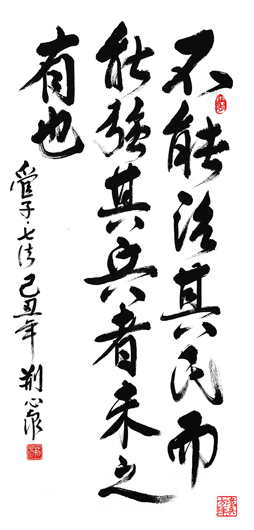 不能治其民而
能强其兵者未之
有也
管子·七法 己丑年 荆心泉